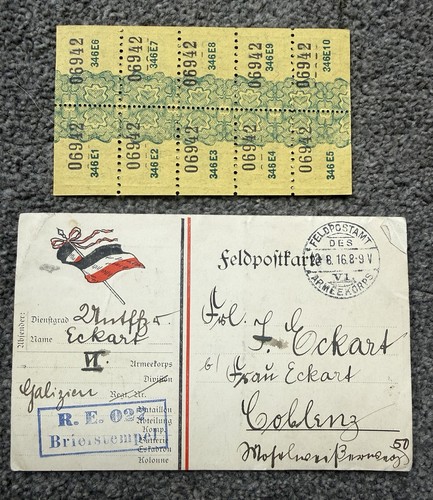 346E6 06942
346E7 06942
346E8 06942
346E9 06942
346E10 06942
06942 346E1
06942 346E2
06942 346E3
06942 346E4
06942 346E5
Feldpostkarte
FELDPOSTAMT
DES
8.16.8-9V
VI.
ARMEEKORPS
Absender:
Dienstgrad
Name Eckart
VI. Armeekorps
Division
Galizien Regt. Nr.
Bataillon
Abteilung
Komp.
Batterie
Eskadron
Kolonne
R. E. 022
Briefstempel
Frl. J. Eckart
b/ Frau Eckart
Coblenz
Moselweißerweg 50